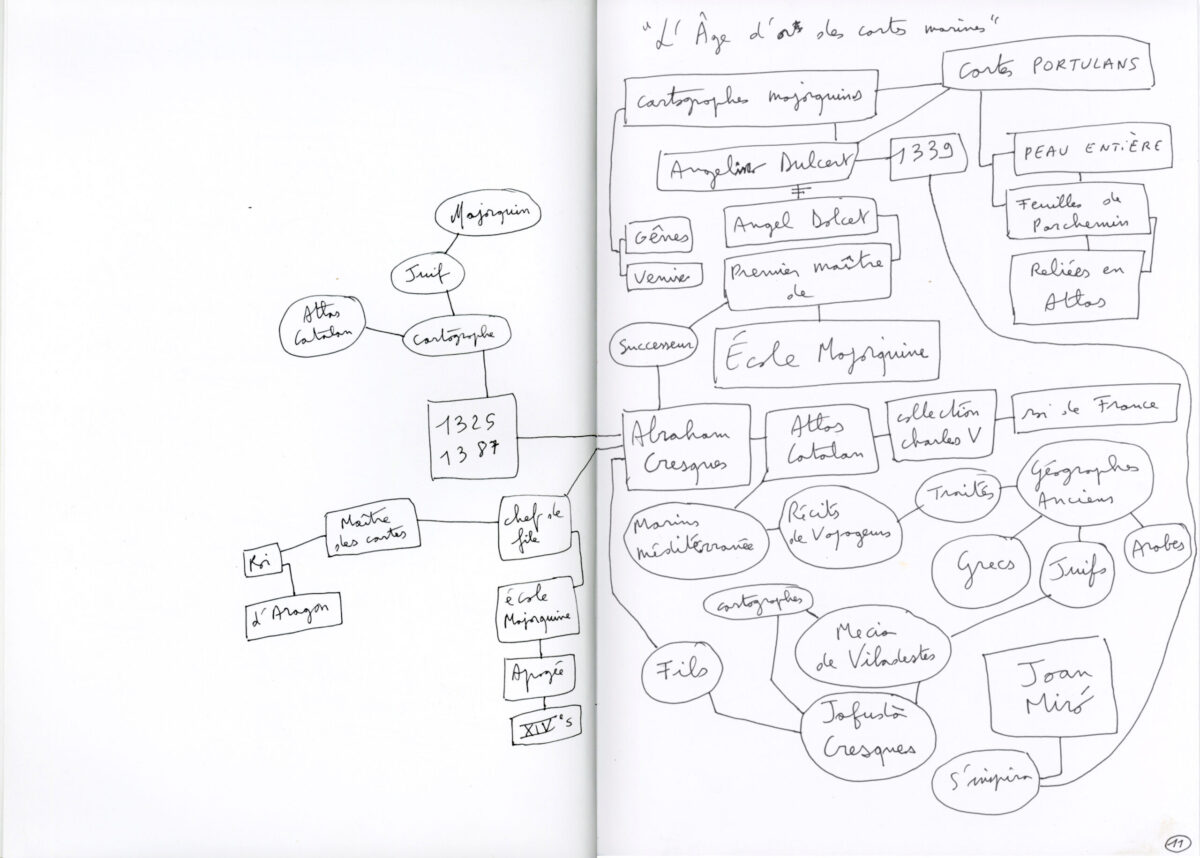 Majorquin
Juif
Atlas
Catalan
Cartographe
1325
1387
Maître
des cartes
chef de
file
Roi
d'Aragon
école
Majorquine
Apogée
XIV°s
"L'Âge d'or des cartes marines"
Cartes PORTULANS
Cartographes majorquins
Angelino Dulcert
1339
PEAU ENTIÈRE
Feuilles de
Parchemin
Reliées en
Atlas
Gênes
Venise
Angel Dolcet
Premier maître
de
Successeur
École Majorquine
Abraham
Cresques
Atlas
Catalan
collection
charles V
roi de France
Marins
méditérranée
Récits
de Voyageurs
Traités
Géographes
Anciens
Grecs
Juifs
Arabes
cartographes
Mecia
de Viladestes
Fils
Jafustà
Cresques
Joan
Miró
S'inspira
11